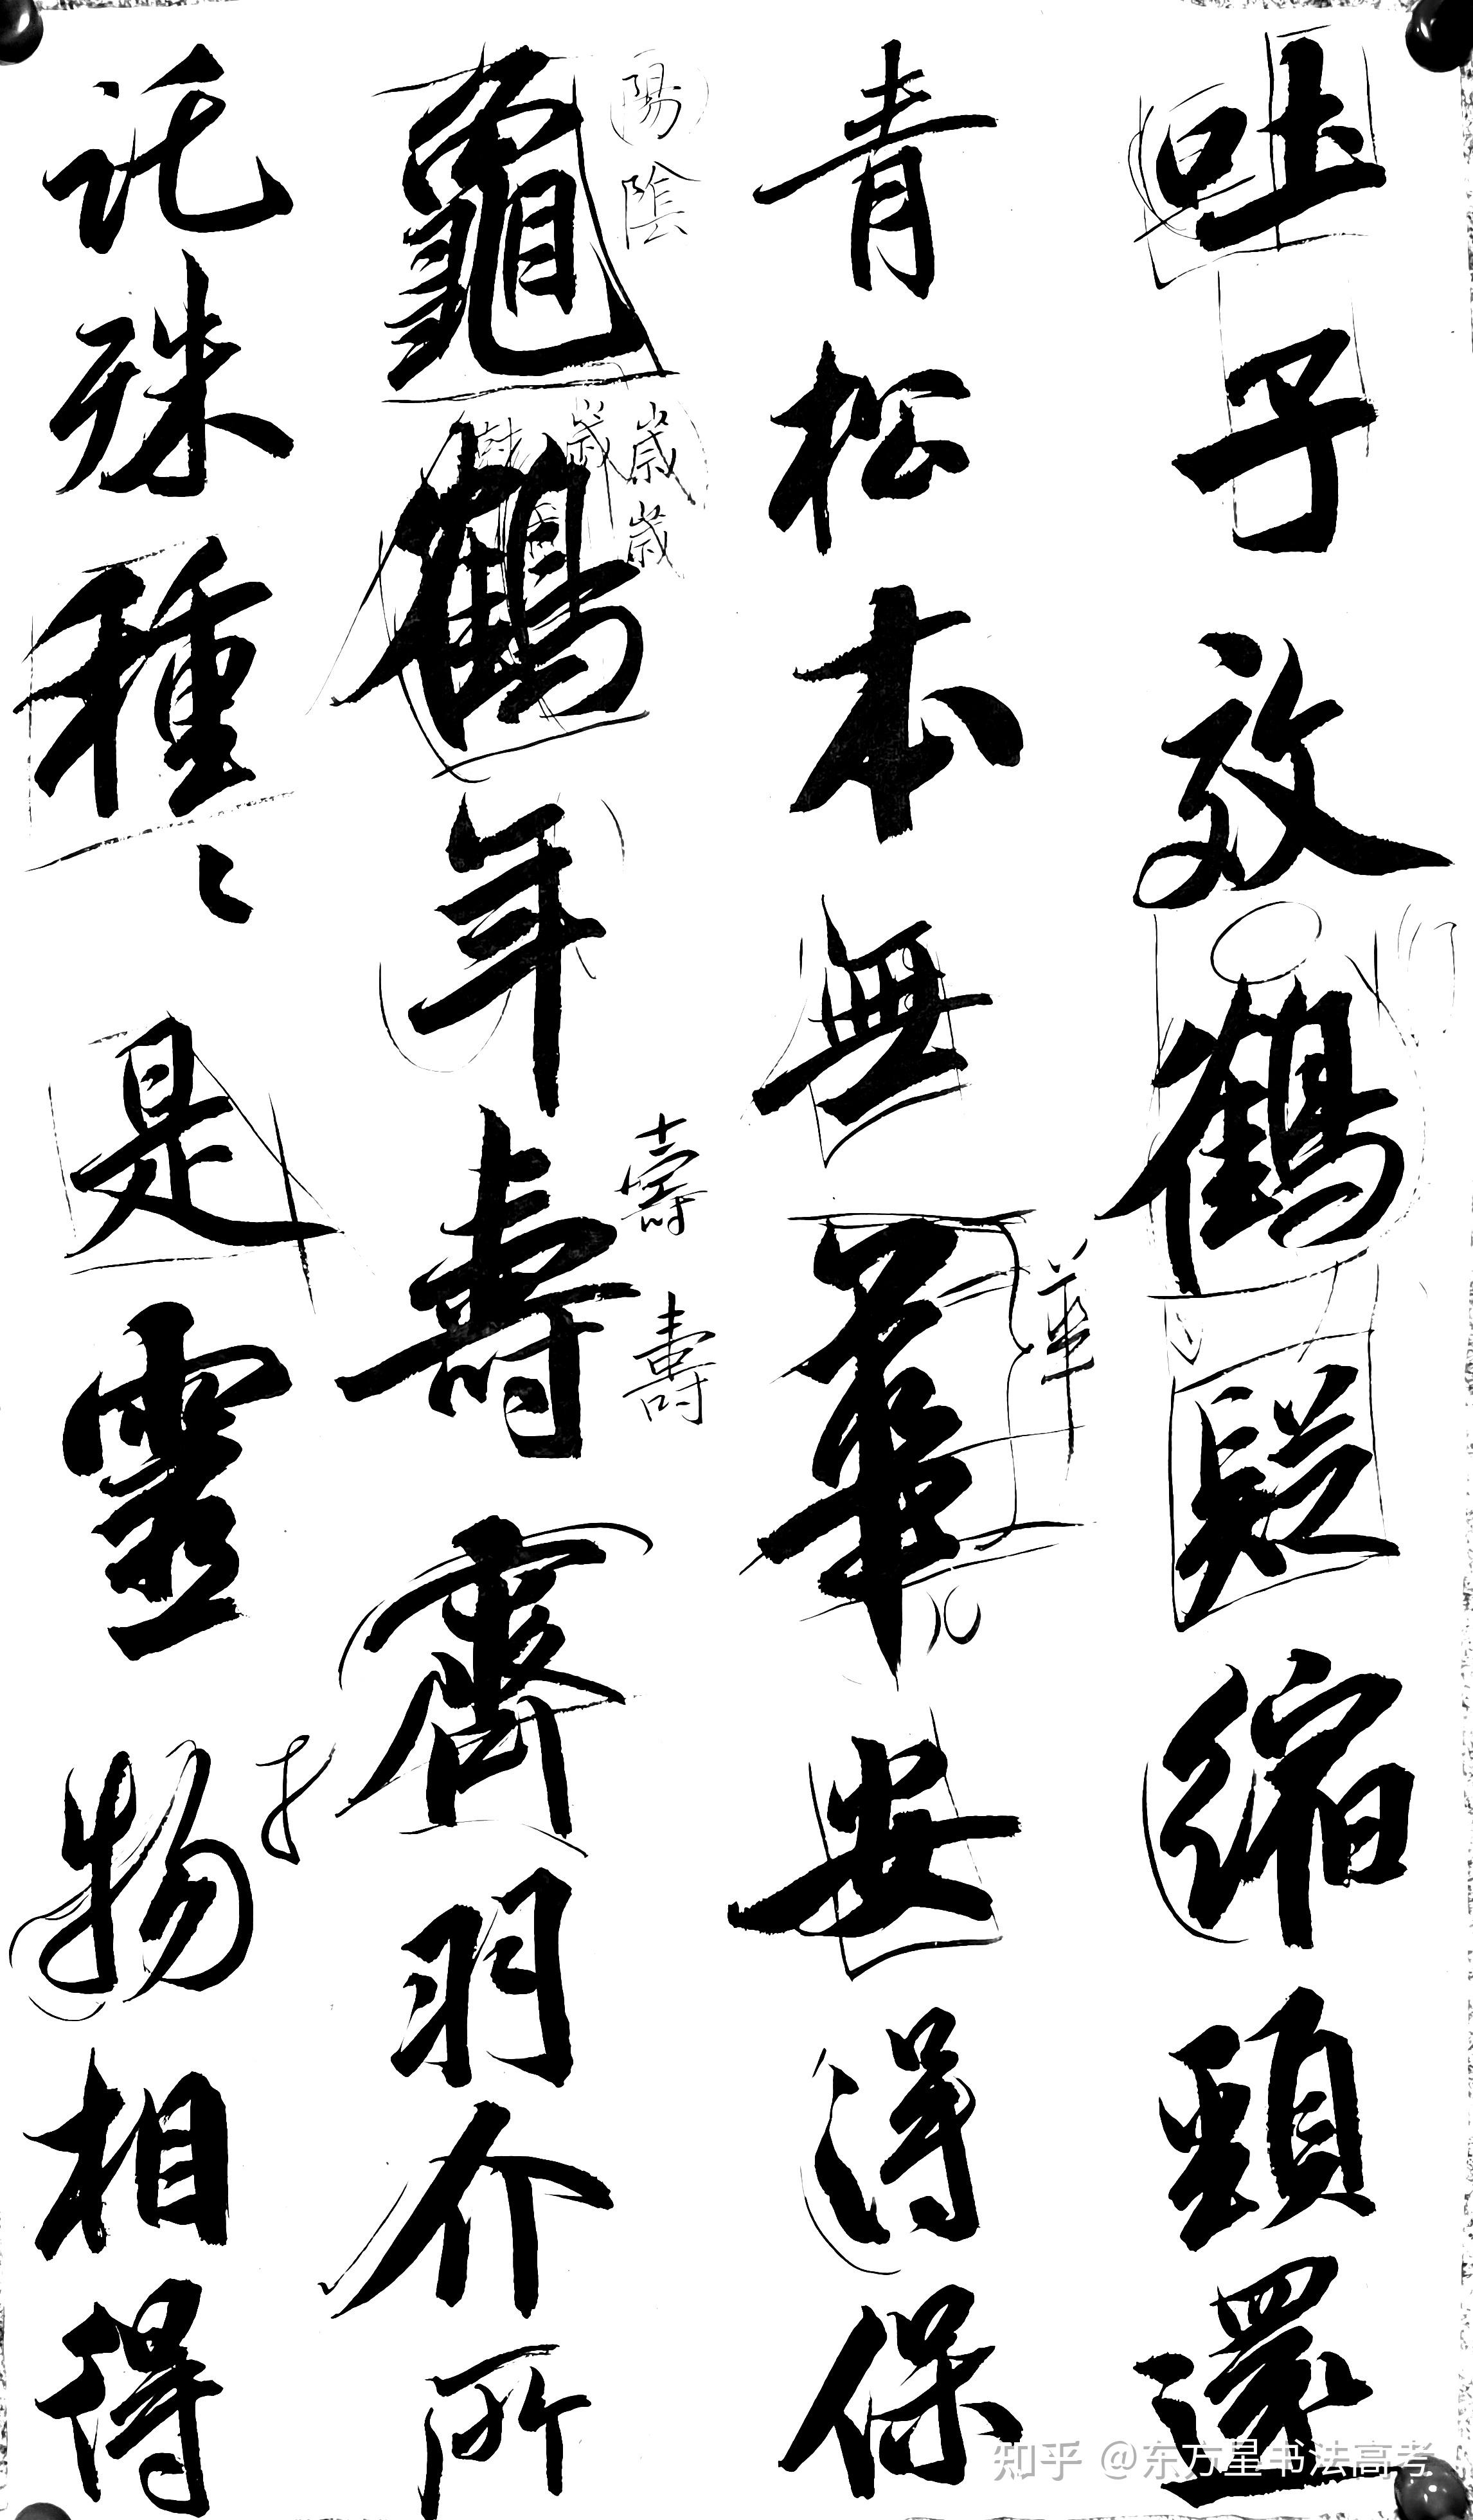 吐子效鶴疑縮頸還
青松本無華安得保
華
龜鶴年壽齊羽介所
陽陰
歲歲
歲
壽
壽
託殊種〻是靈物相得
知乎 @东方星书法高考